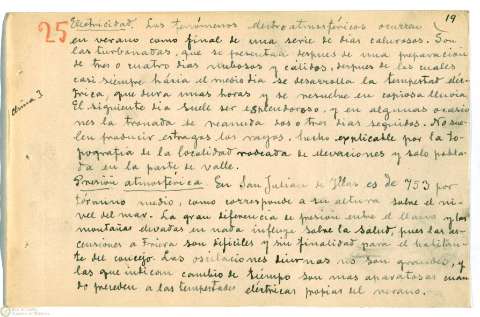 19
25
Electricidad. Los fenómenos electroatmosféricos ocurren
en verano como final de una serie de dias calurosos. Son
las turbonadas, que se presentan despues de una preparación
de tres o cuatro dias nubosos y cálidos, despues de los cuales
casi siempre hácia el medio dia se desarrolla la tempestad eléc-
trica, que dura unas horas y se resuelve en copiosa lluvia.
clima 3
El siguiente dia suele ser esplendoroso, y en algunas ocasio
nes la tronada se reanuda dos o tres dias seguidos. No sue-
len producir estragos los rayos, hecho explicable por la to-
pografia de la localidad rodeada de elevaciones y solo pobla-
da en la parte de valle.
Presión atmosférica. En San Julian de Illas es de 753 por
término medio, como corresponde a su altura sobre el ni-
vel del mar. La gran diferencia de presión entre el llano y las
montañas elevadas en nada influye sobre la salud, pues las as-
censiones a son dificiles y sin finalidad para el habitan-
te del concejo. Las oscilaciones diurnas no son grandes, y
las que indican cambio de tiempo son mas aparatosas cuan
do preceden a las tempestades eléctricas propias del verano.